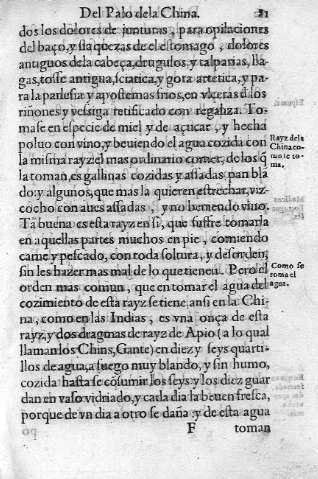 Del Palo dela China. 81
dos los dolores de junturas, para opilaciones
del baço, y flaquezas de el estomago, dolores
antiguos dela cabeça, drugulos, y talparias, lla-
gas, tosse antigua, sciatica, y gota artetica, y pa-
ra la parlesia y apostemas frios, en vlceras d los
riñones y vessiga retificado con regaliza. To-
mase en especie de miel y de açucar, y hecha
poluo con vino, y beuiendo el agua cozida con
la misma rayz el mas ordinario comer, de los q̃
la toman, es gallinas cozidas y assadas pan bla
do: y algunos, que mas la quieren estrechar, viz-
cocho con aues assadas, y no beuiendo vino.
Tã buena es esta rayz en si, que sufre tomarla
en aquellas partes muchos en pie, comiendo
carne y pescado, con toda soltura, y desorden,
sin les hazer mas mal de lo que tienen. Pero el
orden mas comun, que en tomar el agua del
cozimiento de esta rayz se tiene ansi en la Chi-
na, como en las Indias, es vna onça de esta
rayz, y dos dragmas de rayz de Apio (a lo qual
llaman los Chins, Gante) en diez y seys quarti-
llos de agua, a fuego muy blando, y sin humo,
cozida hasta se cõsumir los seys: y los diez guar
dan en vaso vidriado, y cada dia la beuen fresca,
porque de vn dia a otro se daña: y de esta agua
F toman
Rayz dela
China co-
mo se to-
ma.
Como se
toma el
agua.